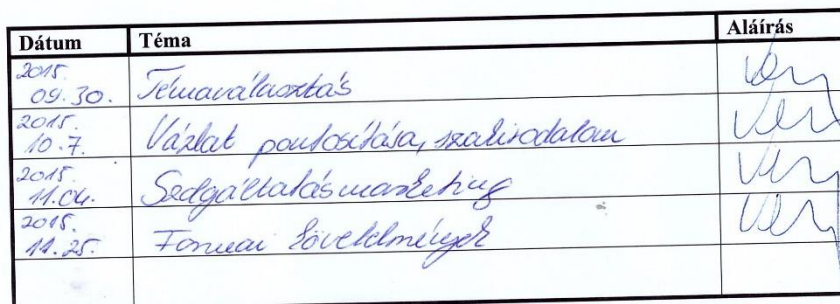 Dátum Téma Aláírás
2015.
09.30. Témaválasztás
2015.
10.7. Vázlat pontosítása, szakirodalom
2015.
11.04. Szolgáltatásmarketing
2015.
11.25. Formai követelmények